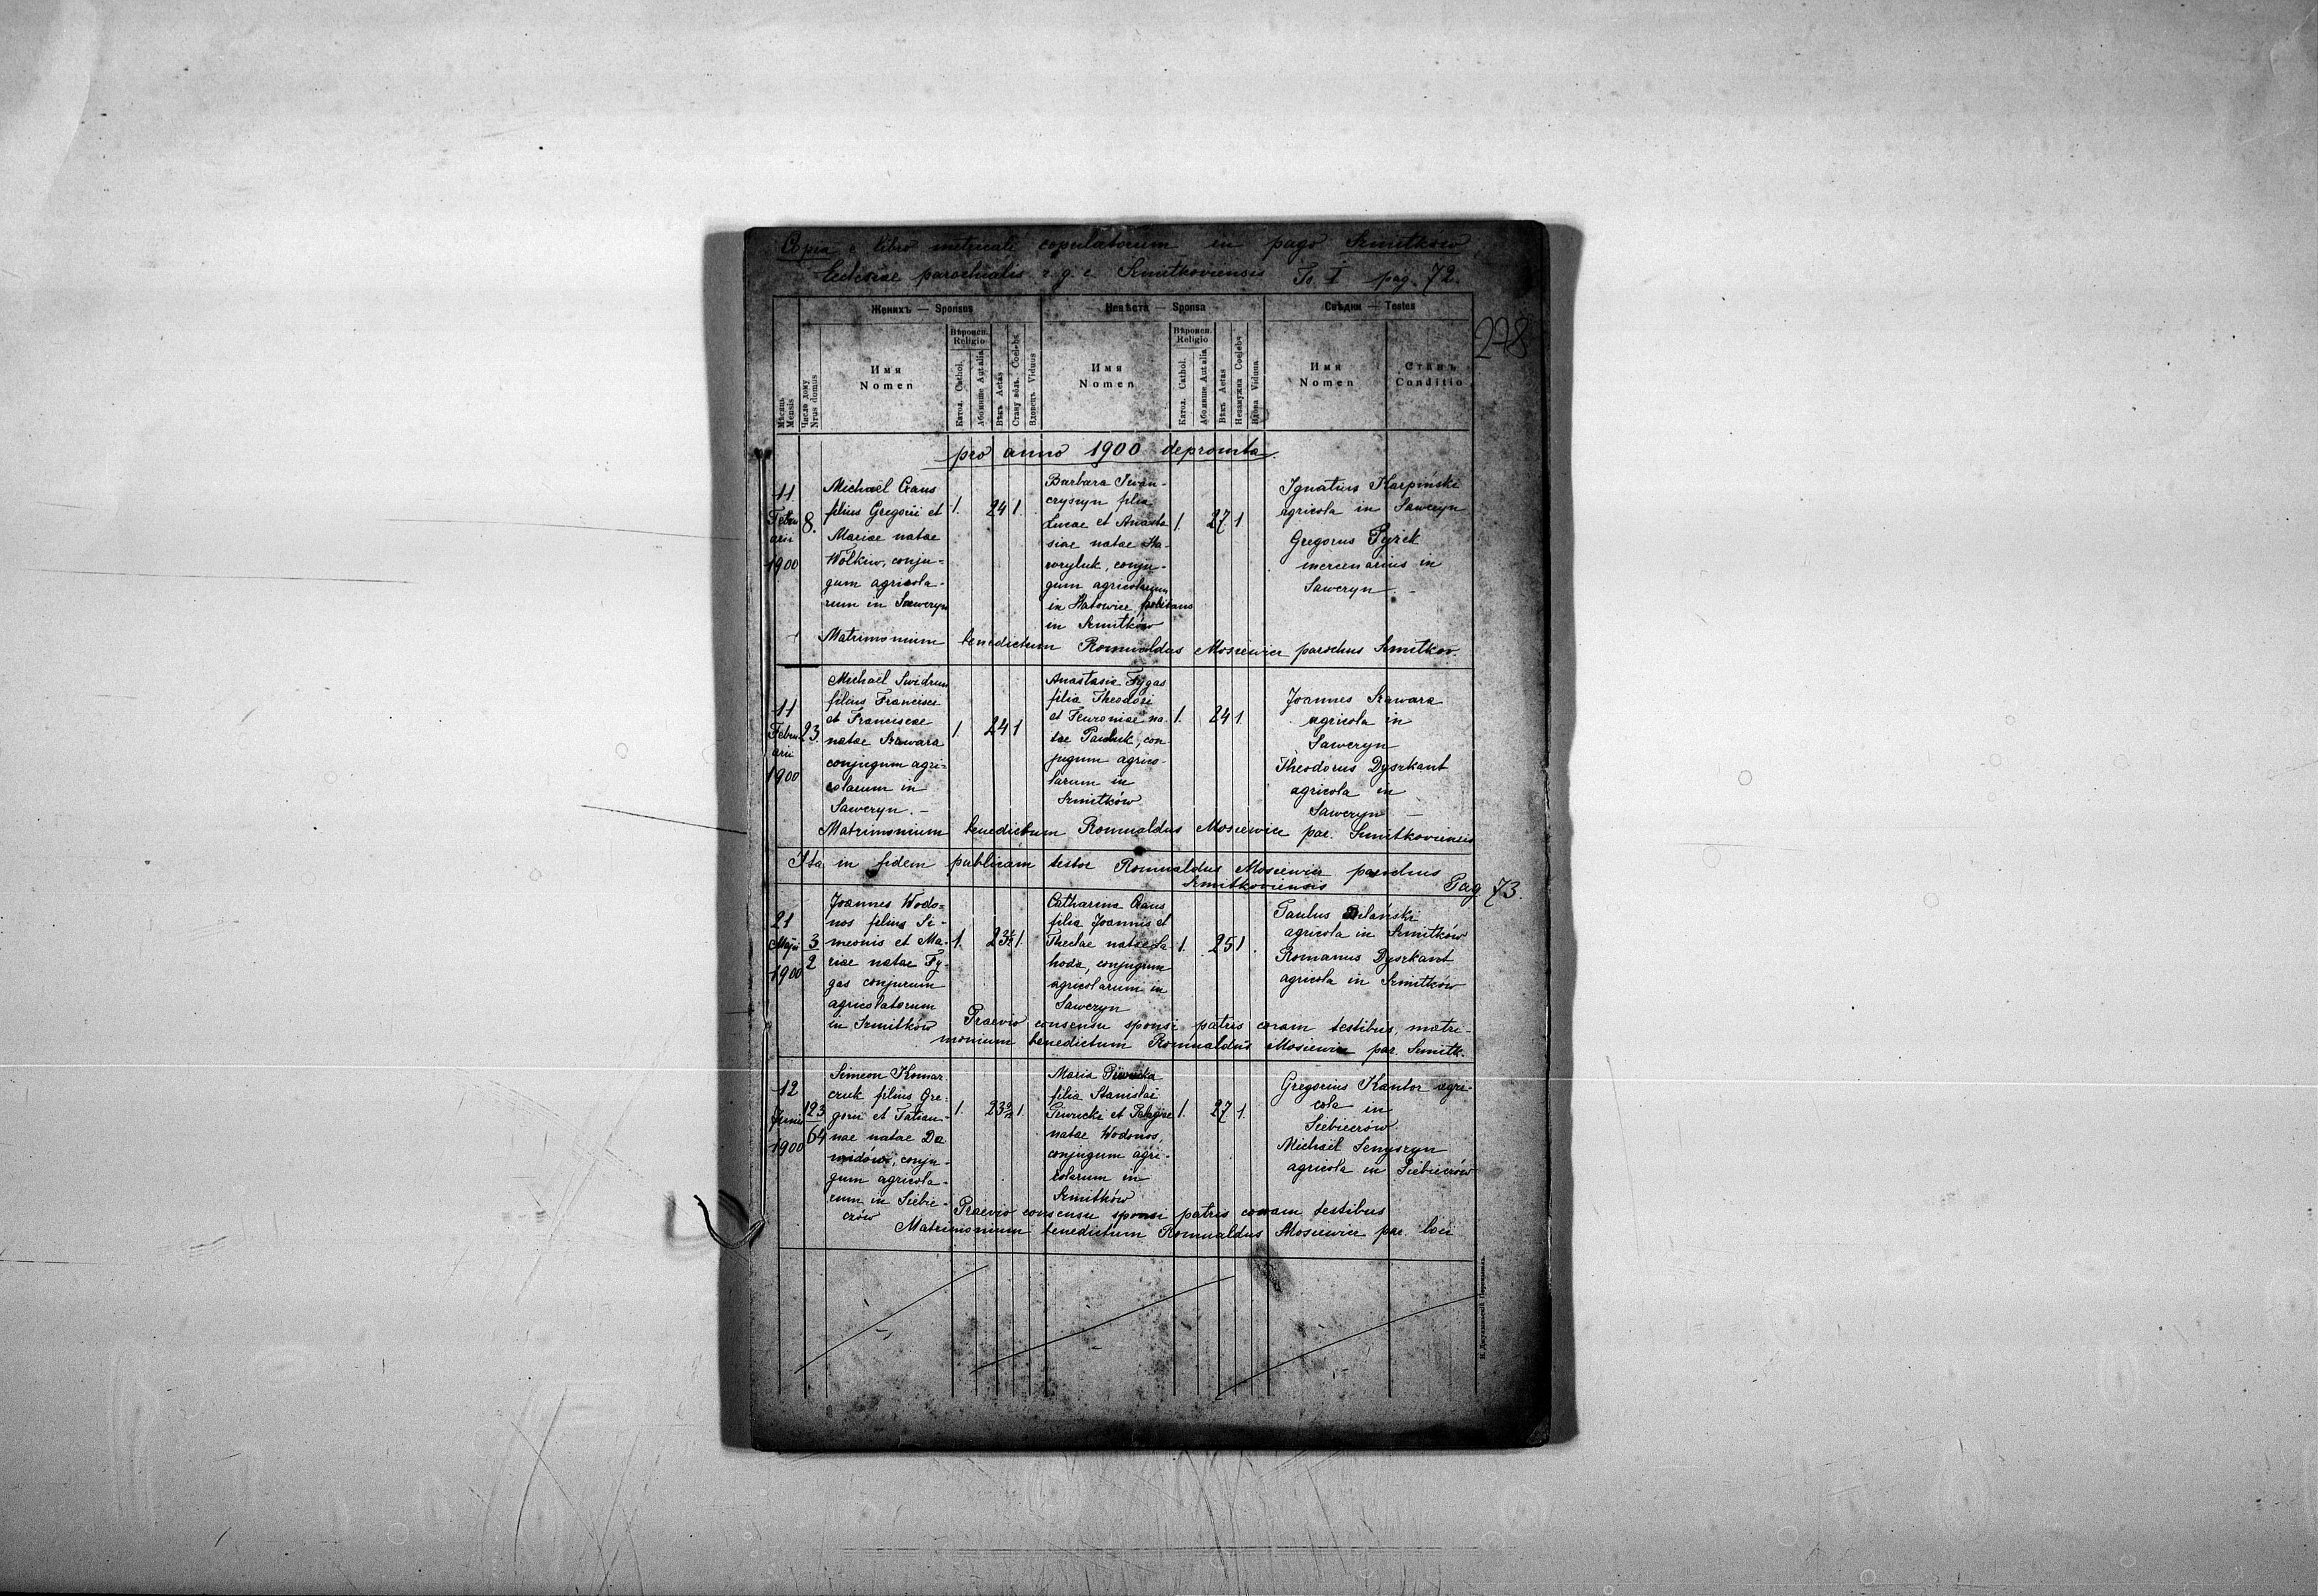 Copia e libro metricali copulatorum in pago Szmitków
Ecclesiae parochialis r. g. c. Szmitkoviensis To. I pag. 72.
278
Женихъ — Sponsus
Невѣста — Sponsa
Свѣдки — Testes
Мѣсяць Mensis
Число дому Nrus domus
Имя
Nomen
Вѣроисп.
Religio
Катол. Cathol.
Або инше Aut alia
Вѣкъ Aetas
Стану вôль. Coelebs
Вдовецъ Viduus
Имя
Nomen
Вѣроисп.
Religio
Катол. Cathol.
Або инше Aut alia
Вѣкъ Aetas
Незамужна Coelebs
Вдова Vidua
Имя
Nomen
Станъ
Conditio
pro anno 1900 depromta.
11
Febru
arii
1900
8.
Michaël Gaus
filius Gregorii et
Mariae natae
Wołkiw, conju=
gum agricola-
rum in Saweryn
1. 24 1.
Barbara Iwan-
cryszyn filia
Lucae et Anasta
siae natae Ha-
wryluk, conju-
gum agricolarum
in Hatowice habitans
in Szmitków
1. 27 1
Ignatius Karpiński
agricola in Saweryn
Gregorus Pyżek
mercenarius in
Saweryn. -
Matrimonium benedictum Romualdus Mosiewicz parochus Szmitkov.
11
Febru
arii
1900
23.
Michaël Swidrun
filius Francisci
et Franciscae
natae Szwara
conjugum agri=
colarum in
Saweryn. -
1. 24 1
Anastasia Fygas
filia Theodori
et Fevroniae na
tae Pauluk, con
jugum agrico-
larum in
Szmitków
1. 24 1.
Joannes Szawara
agricola in
Saweryn
Theodorus Dyszkant
agricola in
Saweryn -
Matrimonium benedictum Romualdus Mosiewicz par. Szmitkoviensis
Ita in fidem publicam testor Romualdus Mosiewicz parochus
Szmitkoviensis
Pag 73.
21
Maji
1900
3
2
Joannes Wodo=
nos filius Si-
meonis et Ma-
riae natae Fy-
gas conjurum
agricolatorum
in Szmitków
1. 23 1.
Catharina Gaus
filia Joannis et
Theclae natae Ła
hoda, conjugum
agricolarum in
Saweryn
1. 25 1.
Paulus Bilański
agricola in Szmitków
Romanus Dyszkant
agricola in Szmitków
Praevio consensu sponsi patris coram testibus, matri-
monium benedictum Romualdus Mosiewicz par. Szmitk.
12
Junii
1900
123
64
Simeon Komar
czuk filius Gre-
gorii et Tatian-
nae natae Da
widów, conju-
gum agricola-
rum in Siebie-
czów
1. 23 1.
Maria Piwicka
filia Stanislai
Piwicki et Pelagiae
natae Wodonos,
conjugum agri-
colarum in
Szmitków
1. 27 1.
Gregorius Kantor agri-
cola in
Siebieczów
Michaël Senyszyn
agricola in Siebieczów
Praevio consensu sponsi patris coram testibus
Matrimonium benedictum Romualdus Mosiewicz par. loci